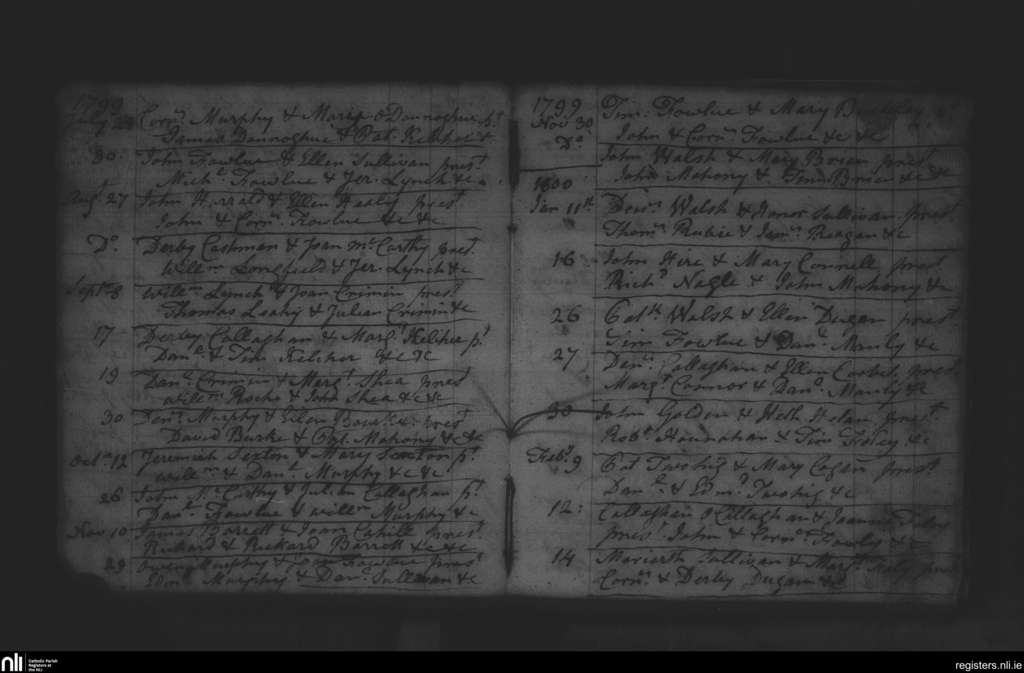 1799
July 28 Corns. Murphy & Mary O Donnoghue pt.
James Donnoghue & Pat. Kelcher &c
30. John Fowlue & Ellen Sullivan prest.
Michl. Fowlue & Jer. Lynch &c.
Aug. 27 John & Ellen Healy prest.
John & Corns. Fowlue &c &c
Do. Derby Cashman & Joan McCarthy prest.
Willm. Longfield & Jer. Lynch &c
Septr. 8 Willm. Lynch & Joan Crimin prest.
Thomas Leahy & Julian Crimin &c
17 Derby Callaghan & Margt. Kelcher pt.
Danl. & Tim Kelcher &c &c
19 Danl. Crimin & Margt. Shea prest
Willm. Roche & John Shea &c &c
30 Denis. Murphy & Ellen prest
David Burke & Pat. Mahony & &c
Octr. 12 Jeremiah Sexton & Mary Sexton pt.
Willm. & Danl. Murphy &c &c
26 John McCarthy & Julian Callaghan pt.
Danl. Fowlue & Willm. Murphy &c
Nov 10 James Barrett & Joan Cahill prest.
Richard & Rickard Barrett &c &c
29 Owen Murphy & Joan Fowlue prest.
Edmd. Murphy & Danl. Sullivan &c
1799
Nov 30 Tim. Fowlue & Mary
John & Corns. Fowlue &c &c
Do. John Walsh & Mary Brien prest.
John Mahony & Tim Brien &c &c
1800
Jan 11th. Denis. Walsh & Honor Sullivan prest.
Thoms. & Reagan &c
16 John Hire & Mary Connell prest.
Richd. Nagle & John Mahony &c
26 Patk. Walsh & Ellen Dugan prest.
Tim Fowlue & Danl. Manly &c
27 Denis. Callaghan & Ellen Corbet prest
Margt. Connor & Danl. Manly &c
30 John Golden & prest.
Robt. Hounahan & Tim &c
Feby. 9 Pat Twohig & Mary Cogan prest.
Danl. & Edmd. Twohig &c
12: Callaghan O Callaghan & Joanna
prest. John & Corns. Fowley &c
14 Sullivan & Margt.
Corns. & Derby Dugan &c
nli
Catholic Parish
Registers at
the NLI
registers.nli.ie